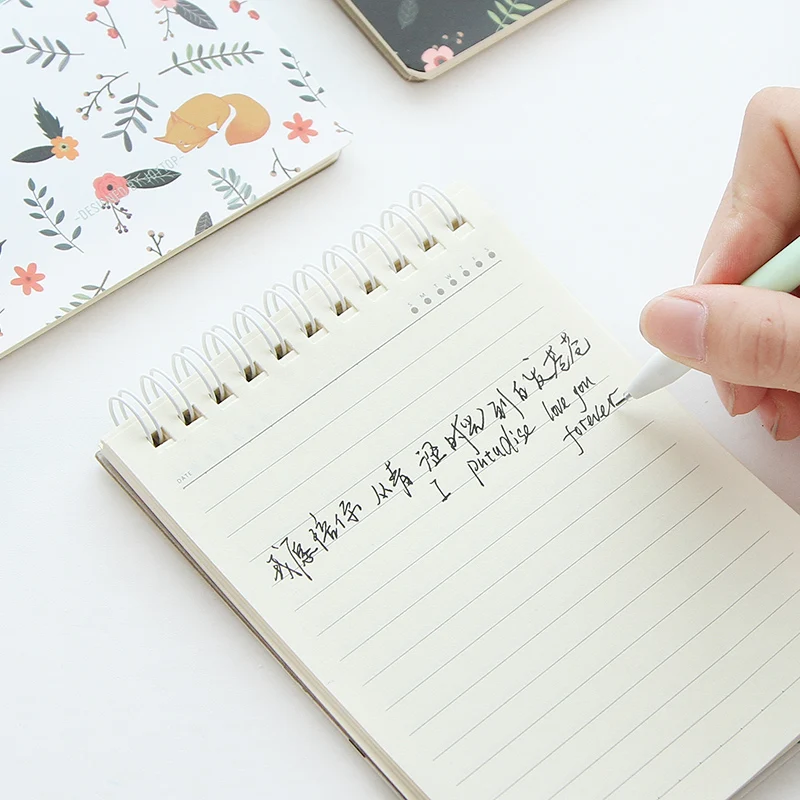 -DESIGNED BY JOYTOP-
S M T W T F S
DATE
我愿陪你 从青涩时光到白发苍苍
I love you
forever